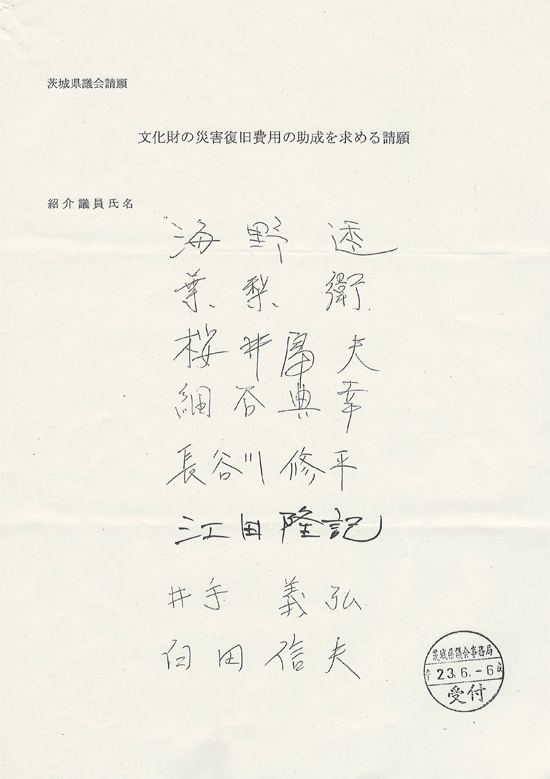 茨城県議会請願
文化財の災害復旧費用の助成を求める請願
紹介議員氏名
海野 透
葉梨 衛
桜井富夫
細谷典幸
長谷川修平
江田隆記
井手 義弘
臼田信夫
茨城県議会事務局
23.6.-6
受付